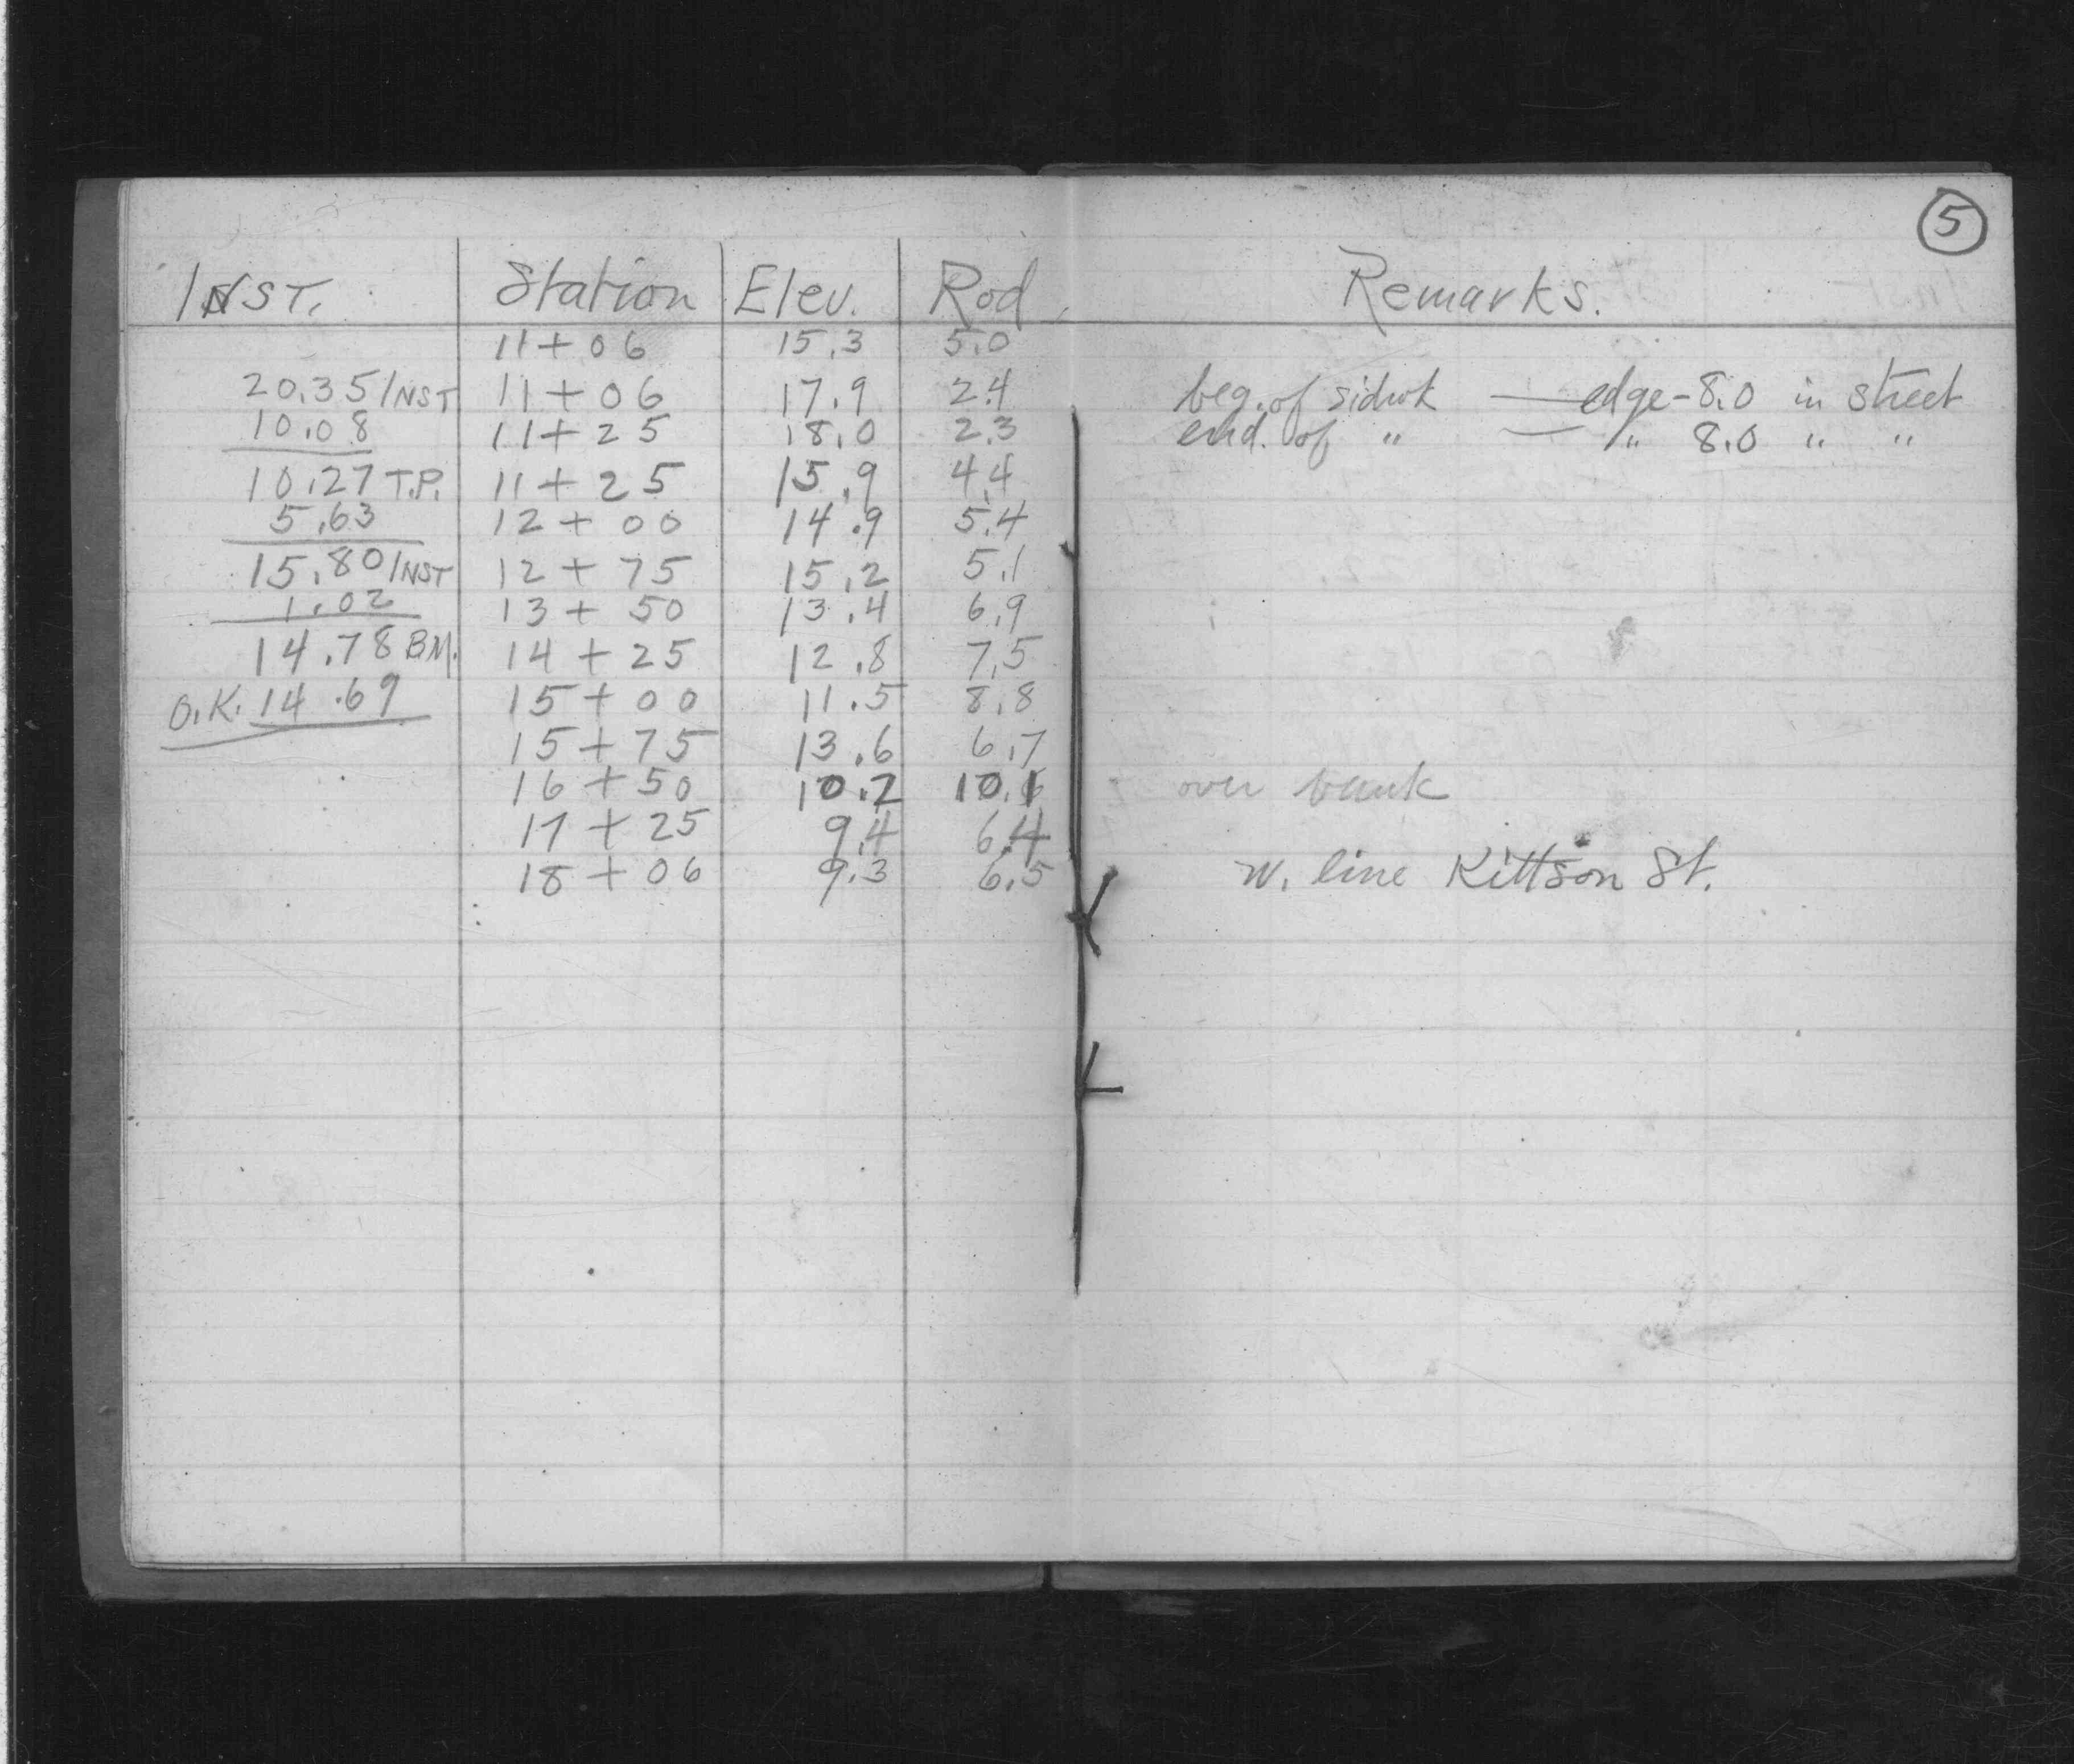 5
INST. Station Elev. Rod Remarks.
11+06 15.3 5.0
20.35 INST 11+06 17.9 2.4 beg. of sidwk — edge - 8.0 in street
10.08 11+25 18.0 2.3 end. of " — " 8.0 " "
10.27 T.P. 11+25 15.9 4.4
5.63 12+00 14.9 5.4
15.80 INST 12+75 15.2 5.1
1.02 13+50 13.4 6.9
14.78 BM. 14+25 12.8 7.5
O.K. 14.69 15+00 11.5 8.8
15+75 13.6 6.7
16+50 10.2 10.1 over bank
17+25 9.4 6.4
18+06 9.3 6.5 W. line Kittson St.